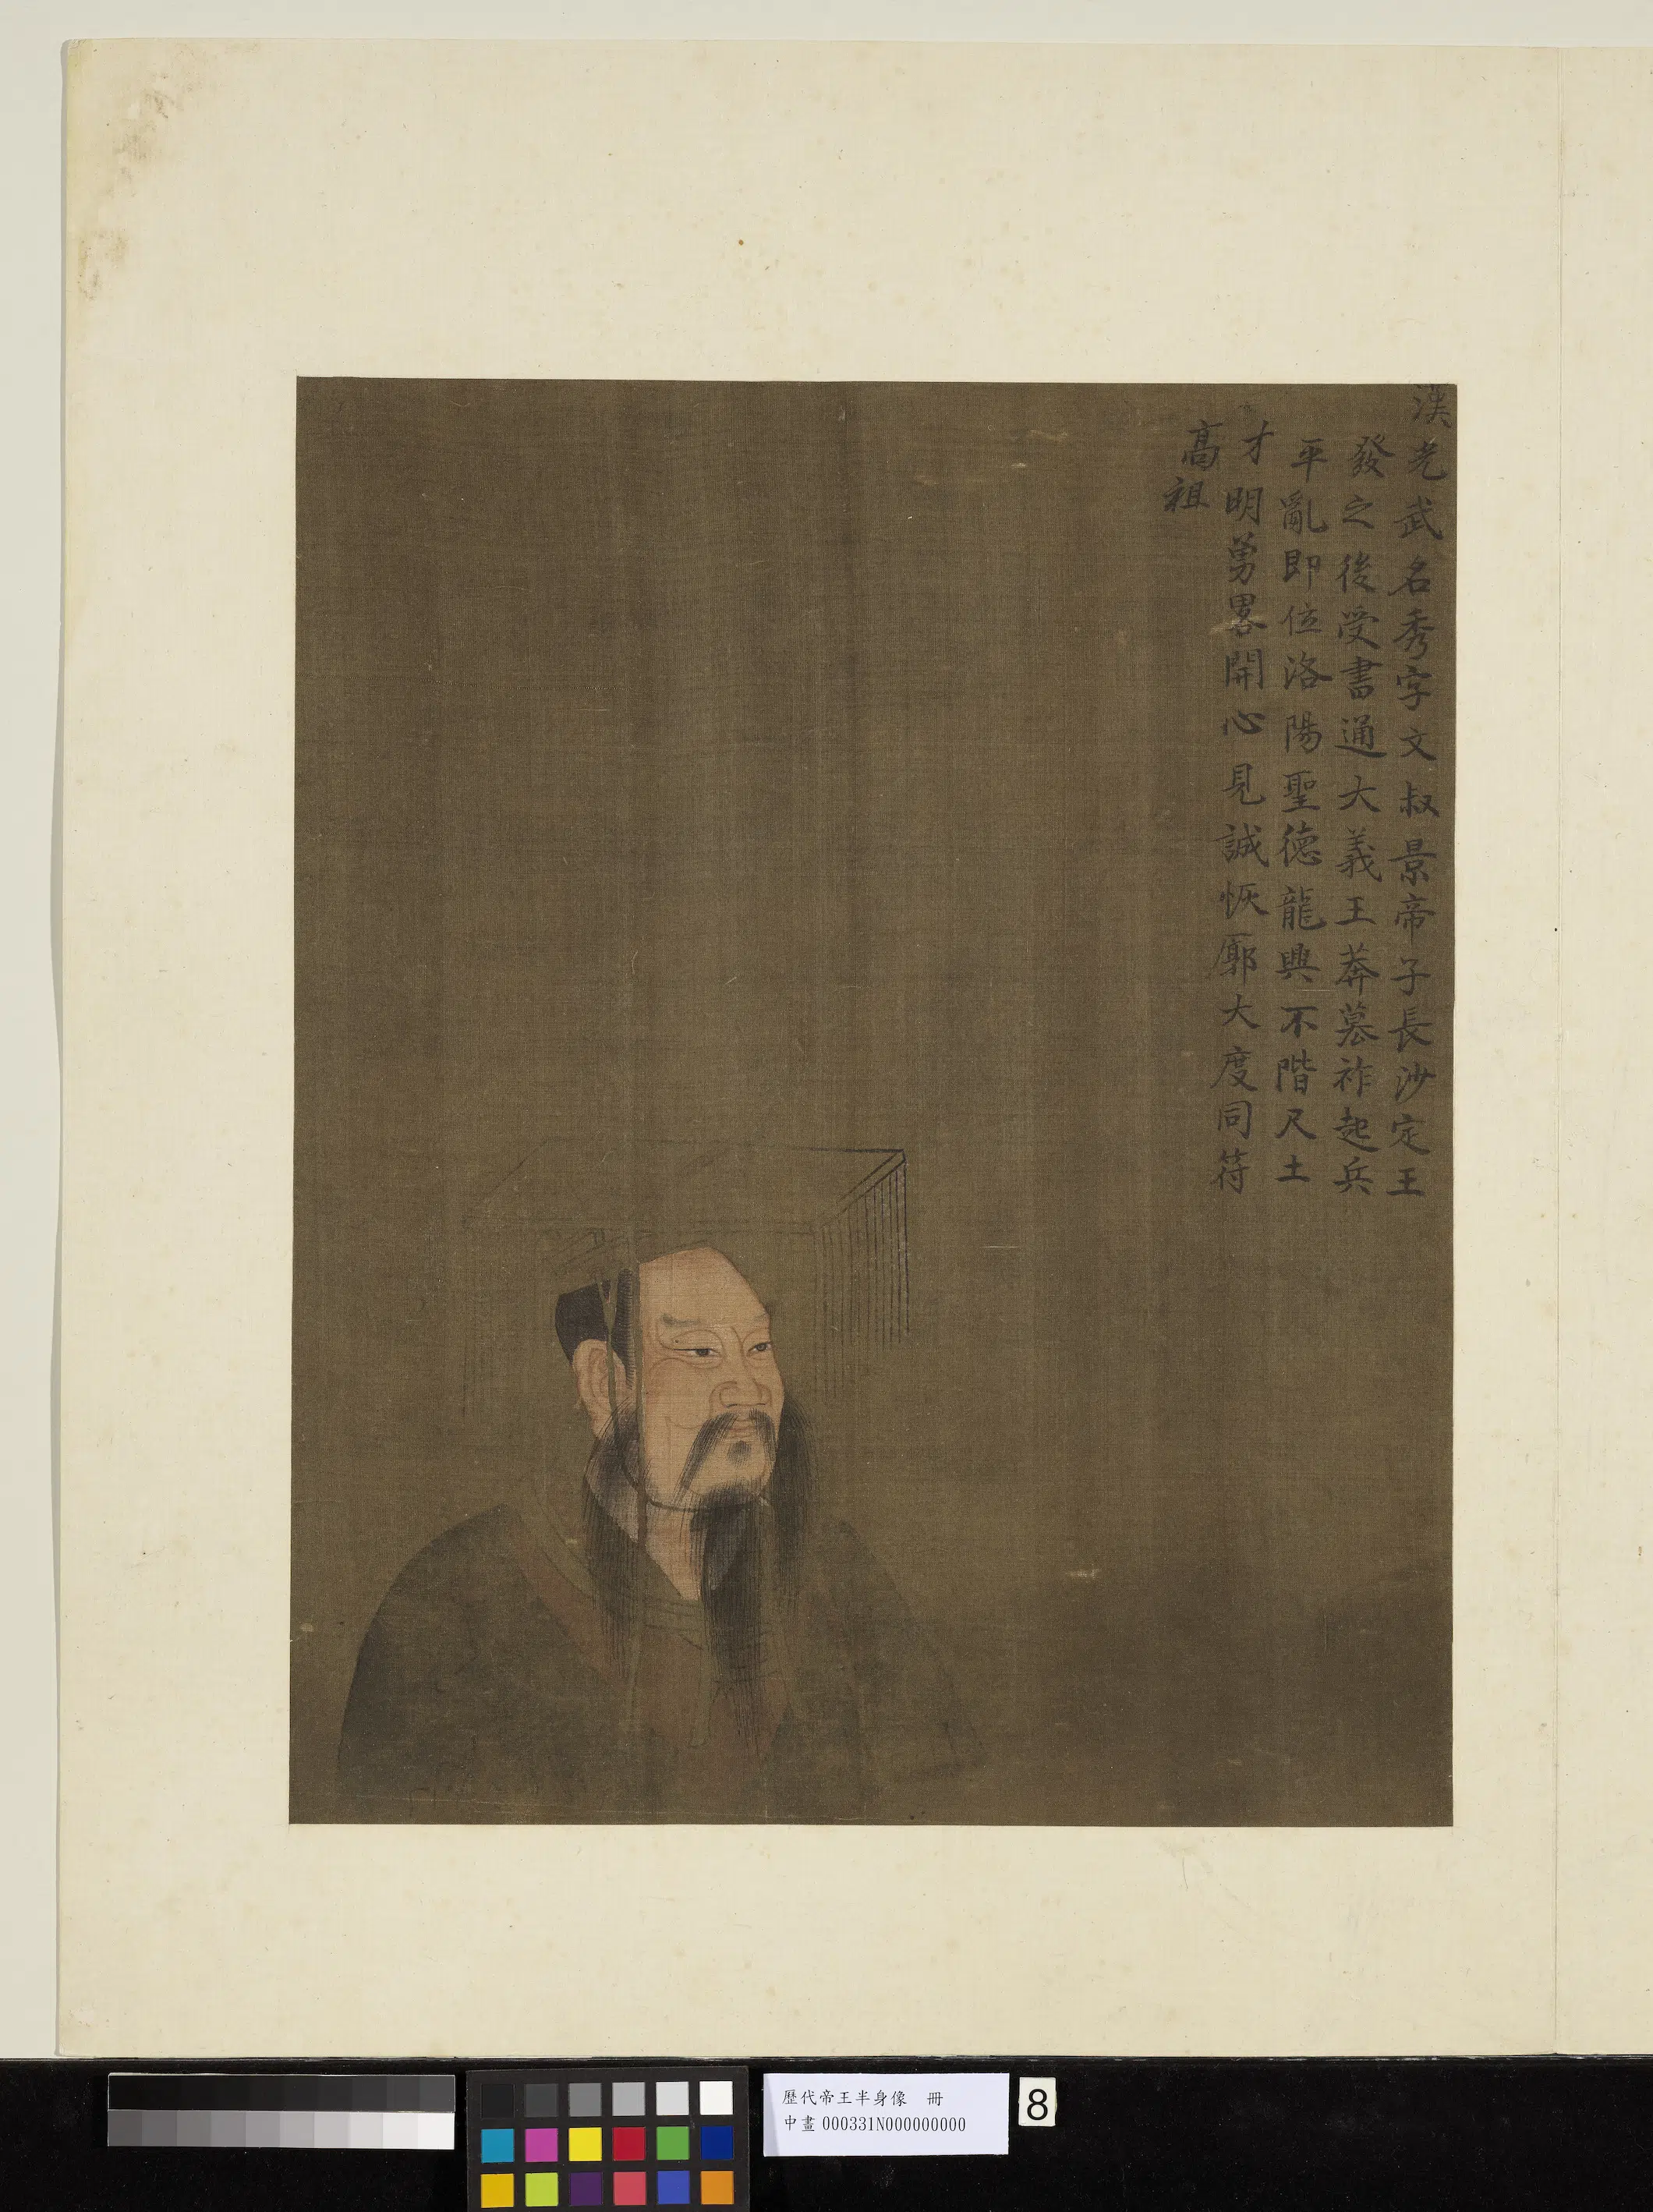 漢光武名秀字文叔景帝子長沙定王
發之後受書通大義王莽簒祚起兵
平亂即位洛陽聖德龍興不階尺土
才明勇畧開心見誠恢廓大度同符
高祖
歷代帝王半身像 冊
中畫000331N000000000
8